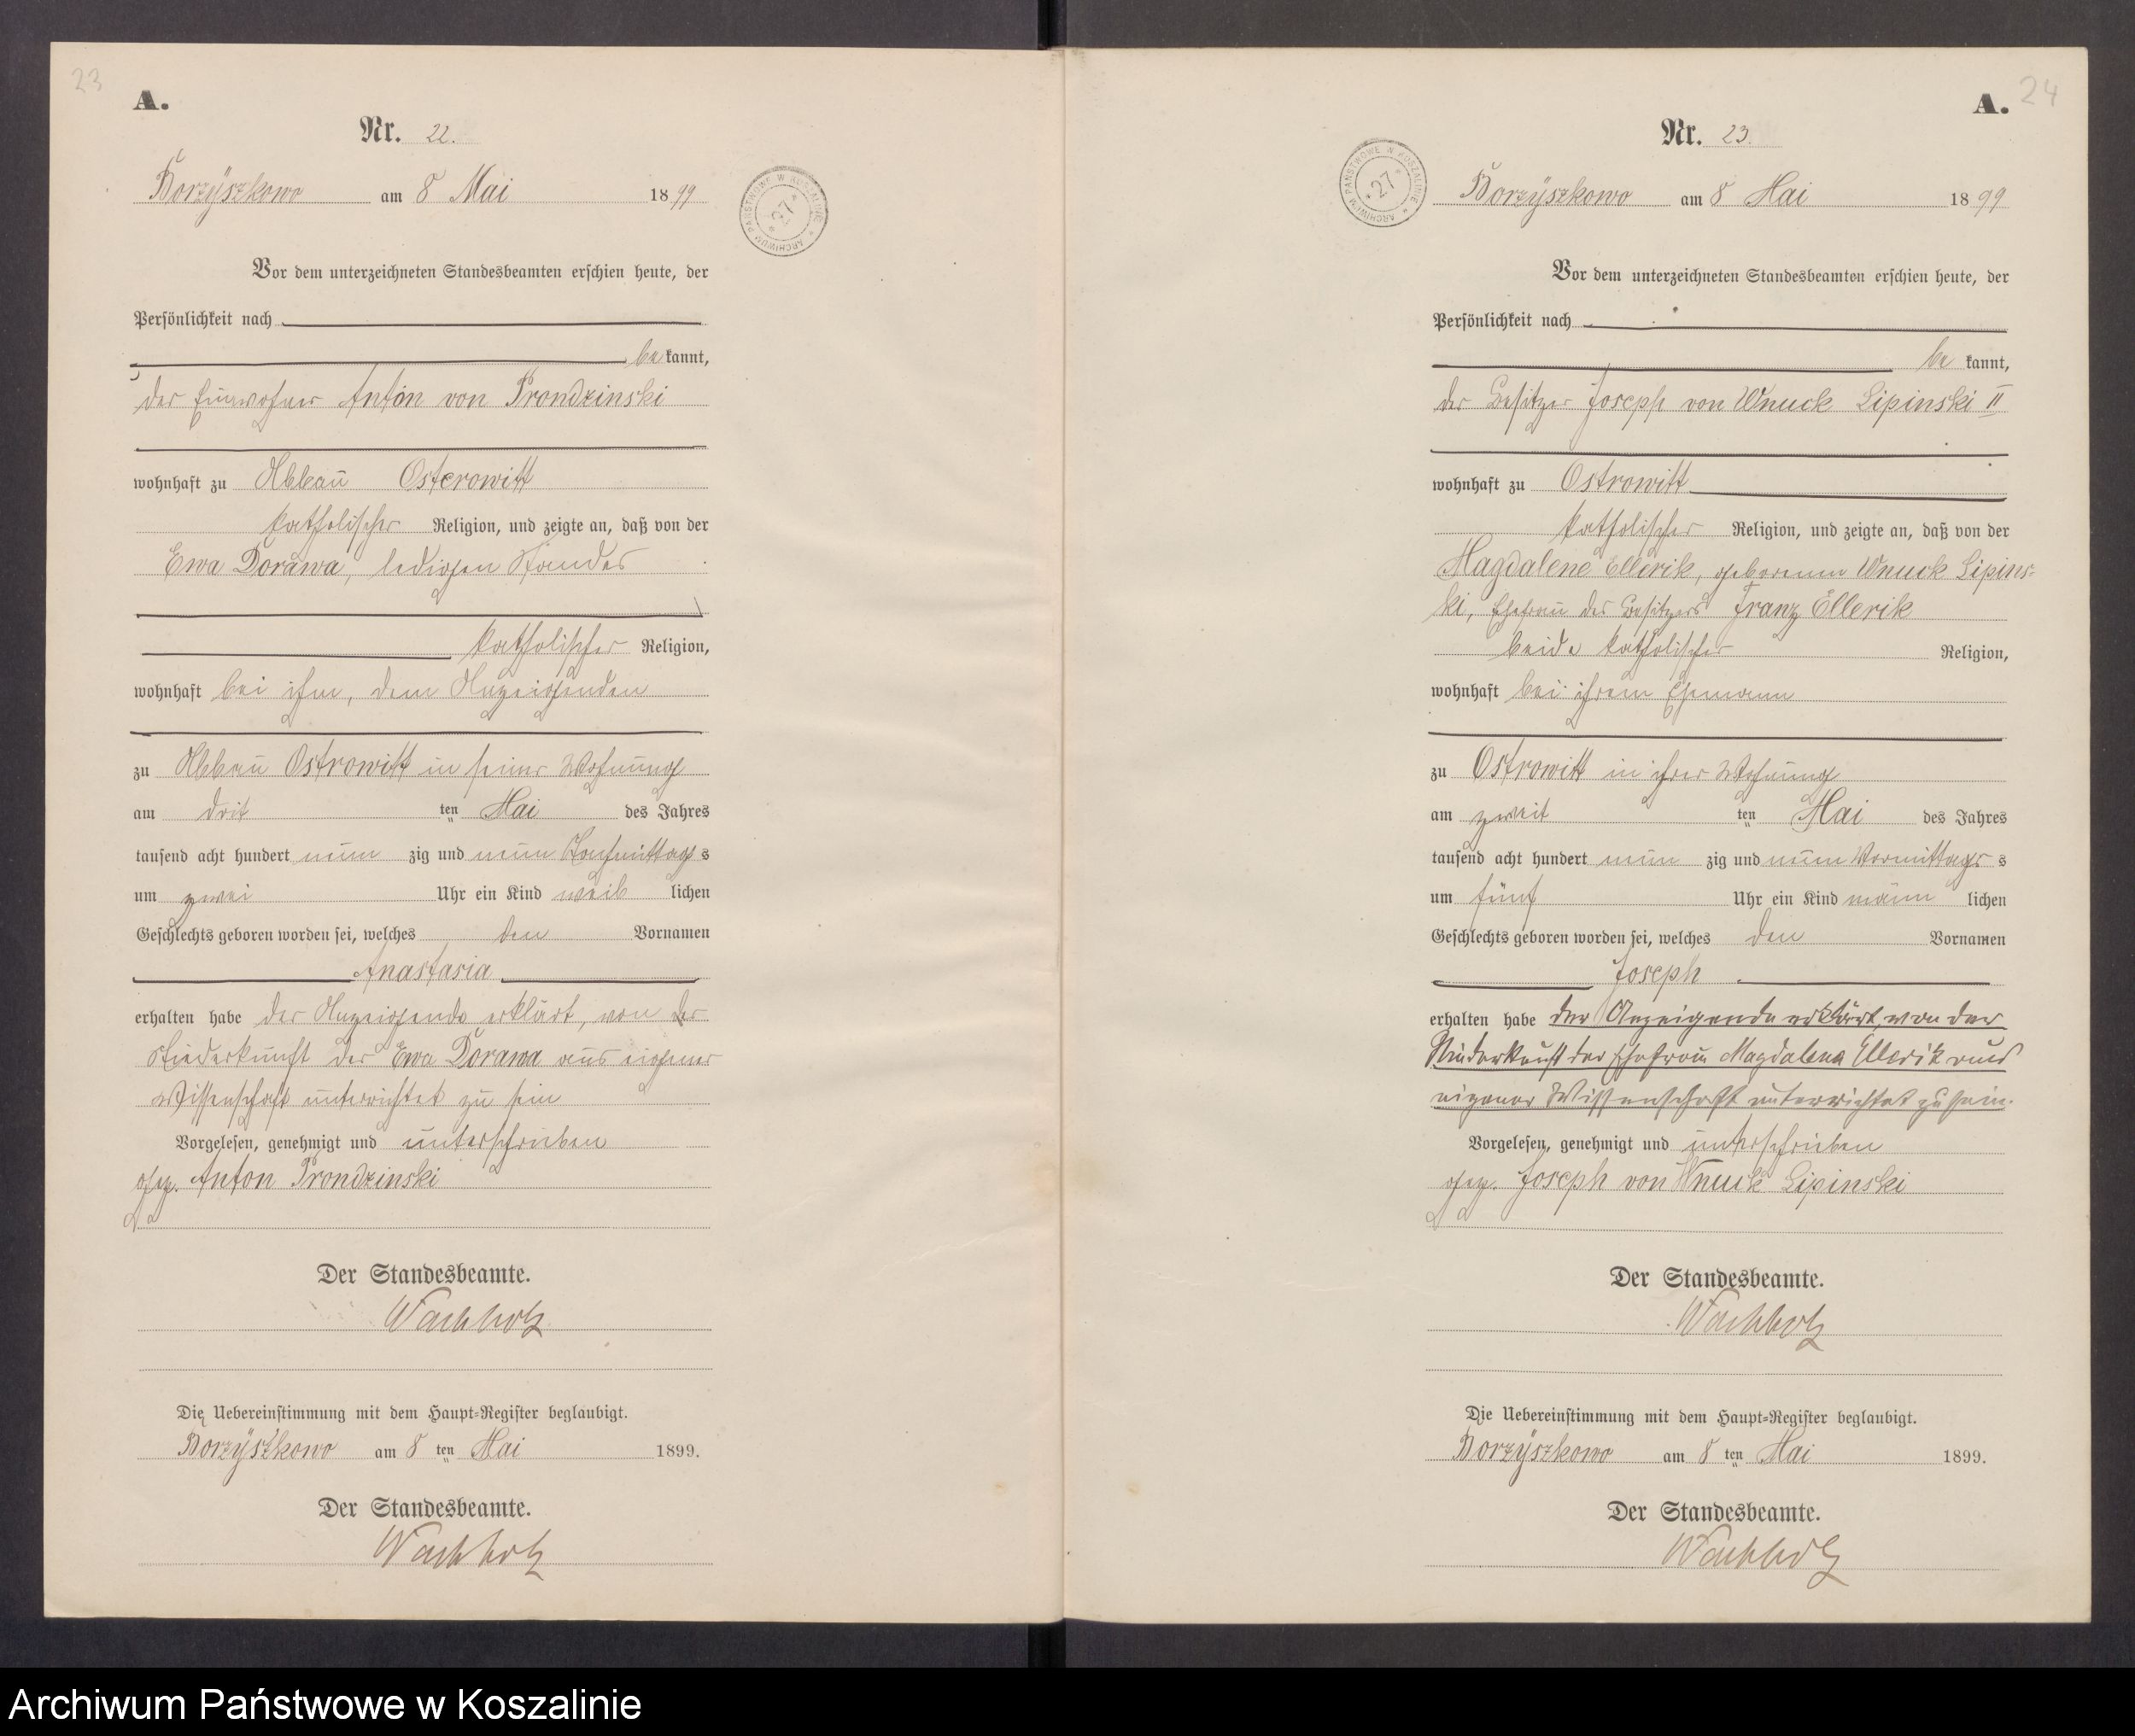 23
A.
Nr. 22.
Borzÿszkowo am 8 Mai 1899
ARCHIWUM PAŃSTWOWE W KOSZALINIE * 27 *
Vor dem unterzeichneten Standesbeamten erschien heute, der
Persönlichkeit nach
be kannt,
der Einwohner Anton von Prondzinski
wohnhaft zu Abbau Osterowitt
katholischer Religion, und zeigte an, daß von der
Ewa Dorawa, ledigen Standes
katholischer Religion,
wohnhaft bei ihm, dem Anzeigenden
zu Abbau Ostrowitt in seiner Wohnung
am drit ten Mai des Jahres
tausend acht hundert neun zig und neun Nachmittag s
um zwei Uhr ein Kind weib lichen
Geschlechts geboren worden sei, welches den Vornamen
Anastasia
erhalten habe der Anzeigende erklärt, von der
Niederkunft der Ewa Dorawa aus eigener
Wissenschaft unterrichtet zu sein
Vorgelesen, genehmigt und unterschrieben
gez. Anton Prondzinski
Der Standesbeamte.
Wachholz
Die Uebereinstimmung mit dem Haupt-Register beglaubigt.
Borzÿszkowo am 8 ten Mai 1899.
Der Standesbeamte.
Wachholz
24
A.
Nr. 23.
ARCHIWUM PAŃSTWOWE W KOSZALINIE * 27 *
Borzÿszkowo am 8 Mai 1899
Vor dem unterzeichneten Standesbeamten erschien heute, der
Persönlichkeit nach
be kannt,
der Besitzer Joseph von Wnuck Lipinski II
wohnhaft zu Ostrowitt
katholischer Religion, und zeigte an, daß von der
Magdalene Ellerik, geborenen Wnuck Lipins-
ki, Ehefrau des Besitzers Franz Ellerik
beide katholischer Religion,
wohnhaft bei ihrem Ehemann
zu Ostrowitt in ihrer Wohnung
am zweit ten Mai des Jahres
tausend acht hundert neun zig und neun Vormittags s
um fünf Uhr ein Kind männ lichen
Geschlechts geboren worden sei, welches den Vornamen
Joseph
erhalten habe der Anzeigende erklärt, von der
Niederkunft der Ehefrau Magdalena Ellerik aus
eigener Wissenschaft unterrichtet zu sein.
Vorgelesen, genehmigt und unterschrieben
gez. Joseph von Wnuck Lipinski
Der Standesbeamte.
Wachholz
Die Uebereinstimmung mit dem Haupt-Register beglaubigt.
Borzÿszkowo am 8 ten Mai 1899.
Der Standesbeamte.
Wachholz
Archiwum Państwowe w Koszalinie